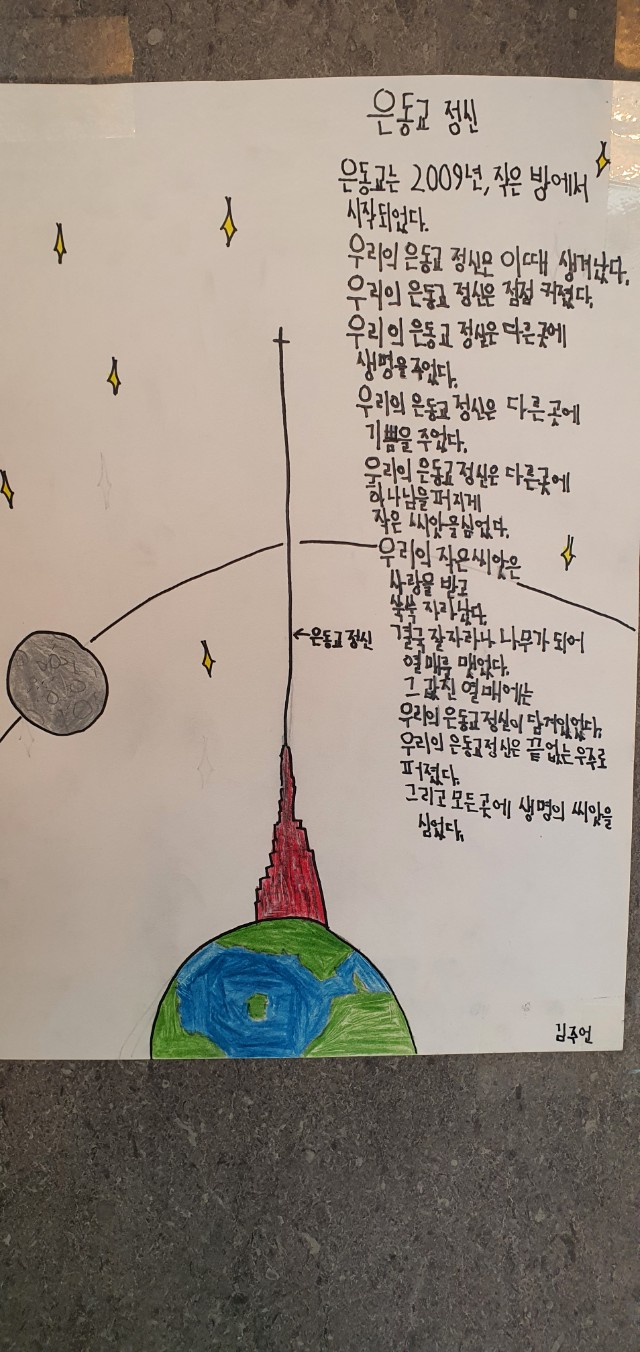 은동교 정신
은동교는 2009년, 작은 방에서
시작되었다.
우리의 은동교 정신은 이때 생겨났다.
우리의 은동교 정신은 점점 커졌다.
우리의 은동교 정신은 다른곳에
생명을 주었다.
우리의 은동교 정신은 다른 곳에
기쁨을 주었다.
우리의 은동교 정신은 다른곳에
하나님을 퍼지게
작은 씨앗을 심었다.
우리의 작은 씨앗은
사랑을 받고
쑥쑥 자라났다.
결국 잘 자라나 나무가 되어
열매를 맺었다.
그 값진 열매에는
우리의 은동교 정신이 담겨있었다.
우리의 은동교 정신은 끝 없는 우주로
퍼졌다.
그리고 모든곳에 생명의 씨앗을
심었다.
←은동교 정신
김주언